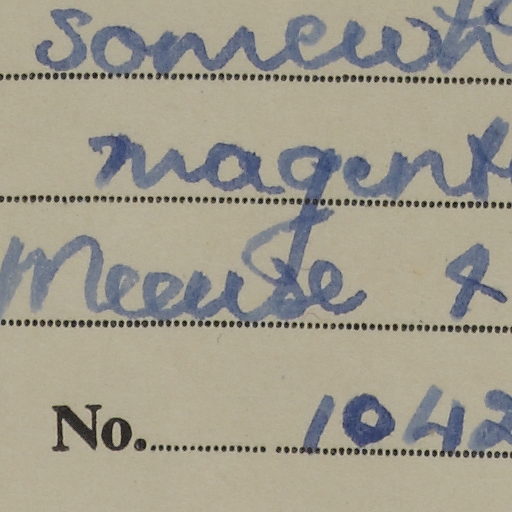 somewh
magent
Meeuse &
No. 1042